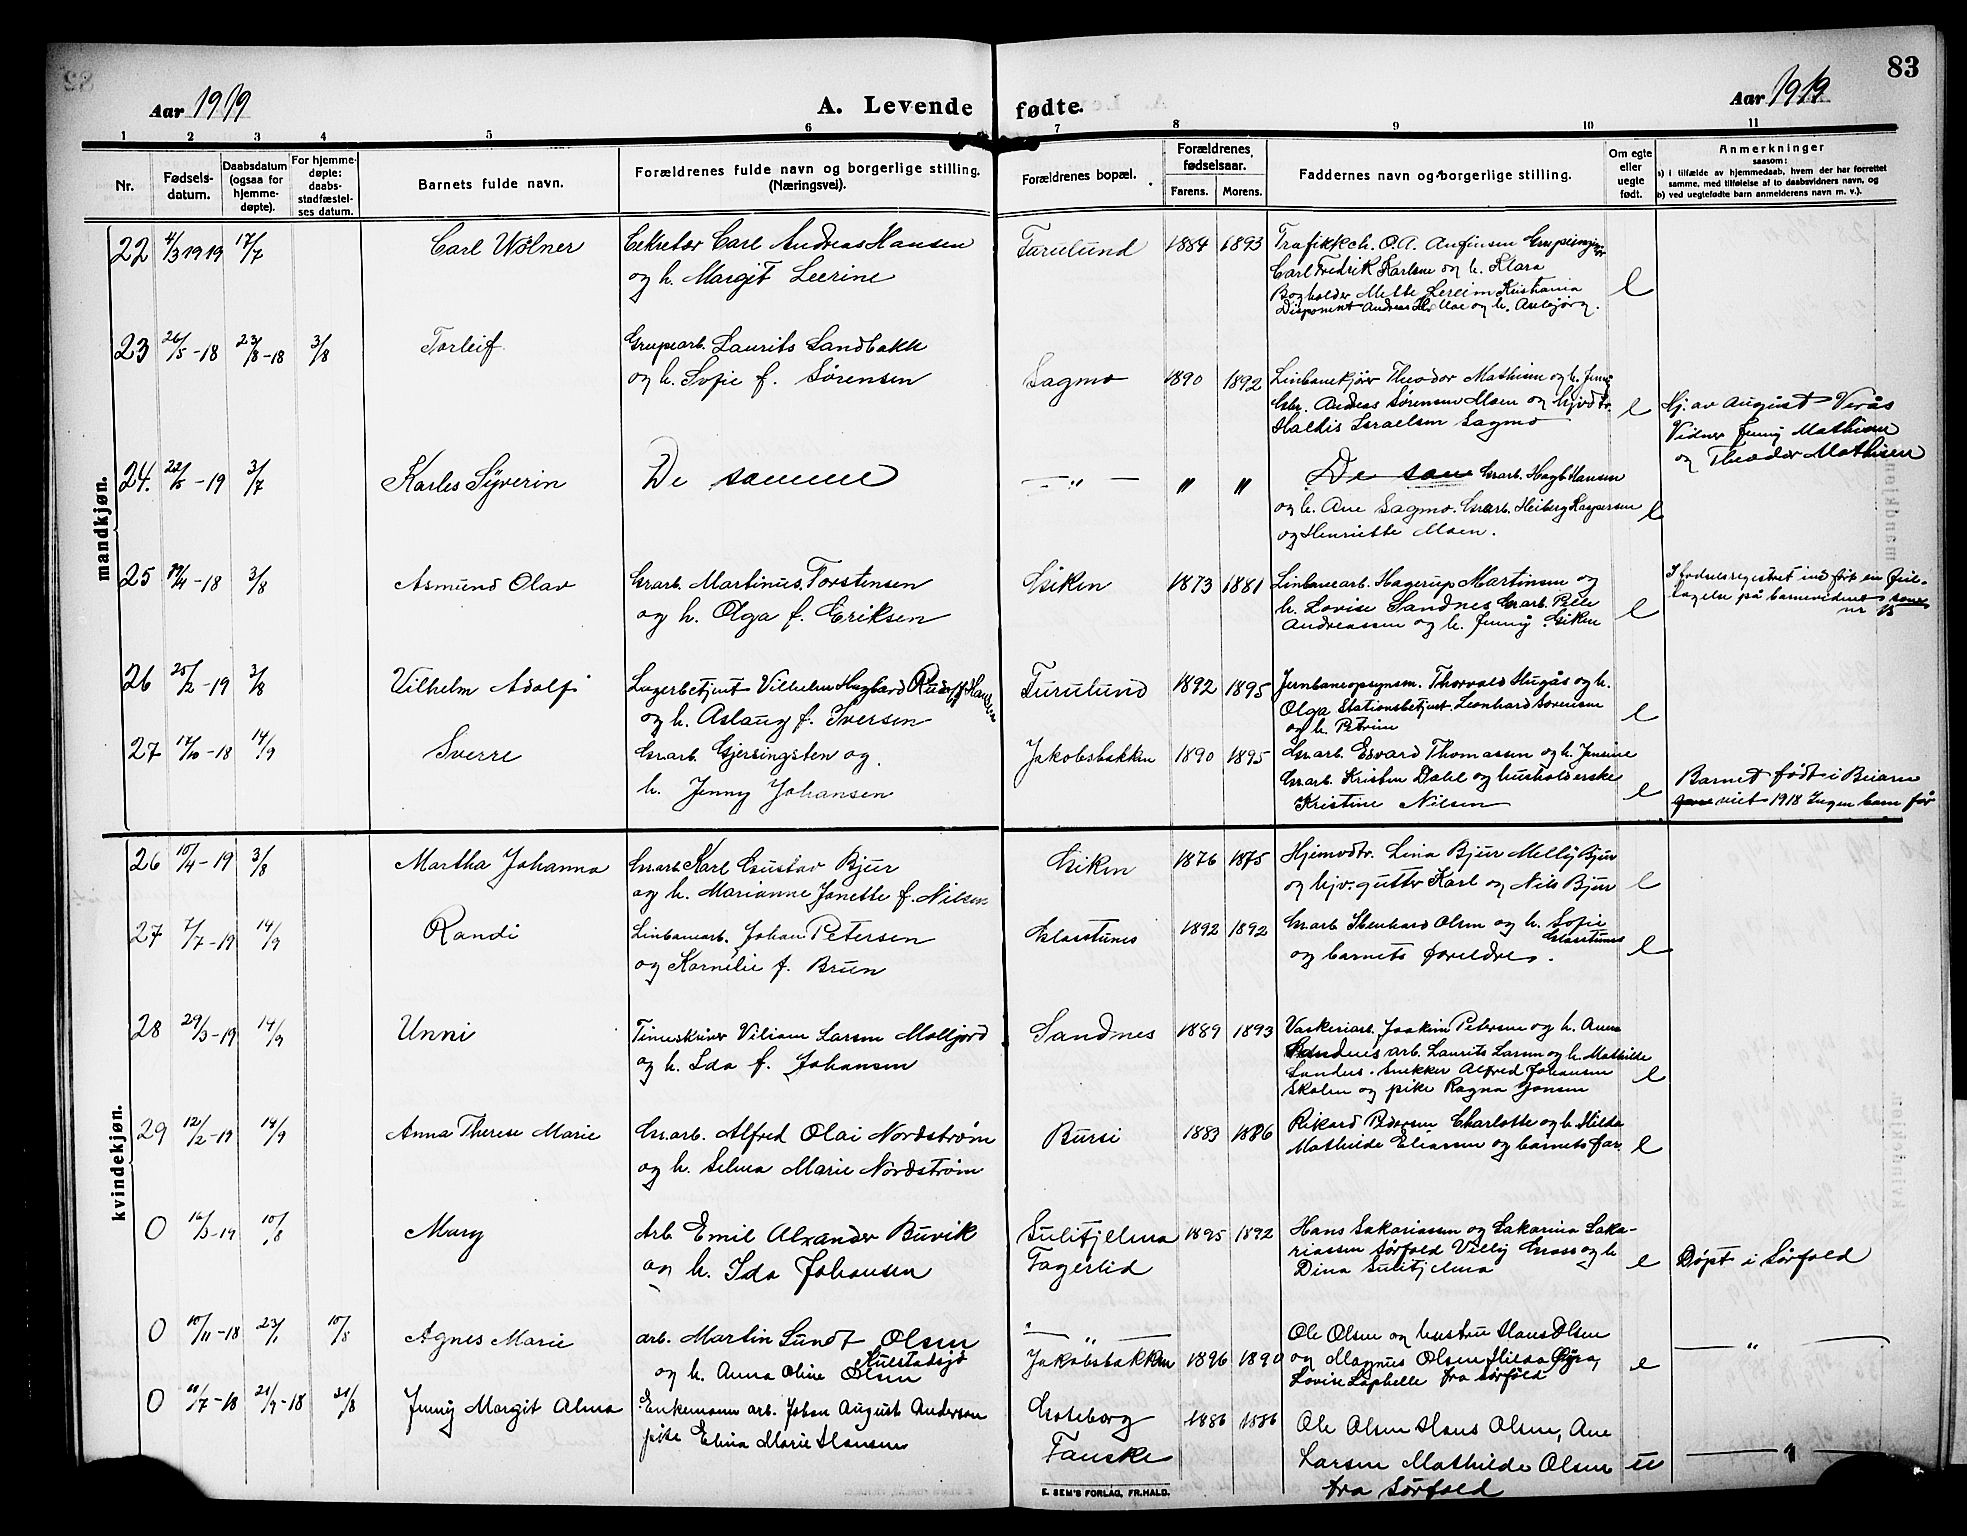 83
Aar 1919
A. Levende fødte.
Aar 1919
1 2 3 4 5 6 7 8 9 10 11
Nr.
Fødsels-
datum.
Daabsdatum
(ogsaa for
hjemme-
døpte).
For hjemme-
døpte:
daabs-
stadfæstel-
ses datum.
Barnets fulde navn.
Forældrenes fulde navn og borgerlige stilling.
(Næringsvei).
Forældrenes bopæl.
Forældrenes
fødselsaar.
Farens. Morens.
Faddernes navn og borgerlige stilling.
Om egte
eller
uegte
født.
Anmerkninger
saasom:
a) i tilfælde av hjemmedaab, hvem der har forrettet
samme, med tilføielse af to daabsvidners navn, og
b) ved uegtefødte barn anmelderens navn m. v.).
mandkjøn.
22 4/3 1919 17/7 Carl Wølner Sekretær Carl Andreas Hansen Furulund 1884 1893 Trafikkch. O. A. Anfinsen
og h. Margit Leerine Carl Fredrik Karlsen og h. Klara
Bogholder Kristiania e
Disponent Andreas og h. Anbjørg.
23 26/5-18 23/8-18 3/8 Torleif Grupearb. Laurits Sandbakk
og h. Sofie f. Sørensen Sagmo 1890 1892 Linbanekjører Theodor Mathisen og h. Jenny
Grb. Andreas Sørensen Moen og hjvdtr. e Hj. av August Verås
Haldis Israelsen Sagmo Vidner Jenny Mathisen
og Theodor Mathisen
24. 22/5-19 3/7 Karles Syverin De samme — " — " " De sam Grarb. Hagb. Hansen
og h. Ane Sagmo. Grarb. Heiberg Kaspersen e
og Henriette Moen.
25 19/4-18 3/8 Asmund Olav Grarb. Martinus Torstensen Giken 1873 1881 Linbanearb. Hagerup Martinsen og I fødselsregistret ind ført en feil-
og h. Olga f. Eriksen h. Lovise Sandnes Grarb. Peile e tagelse på barnevidnes
Andreassen og h. Jenny Giken nr 15
26 25/2-19 3/8 Vilhelm Adolf Lagerbetjent Vilhelm Hagbard Rudolf Hansen Furulund 1892 1895 Jernbaneopsynsm. Thorvald Hugås og h.
og h. Aslaug f. Iversen Olga Stationsbetjent Leonhard Sørensen e
og h. Petrine
27 17/10-18 14/9 Sverre Grarb. Gjersingsten og Jakobsbakken 1890 1895 Grarb. Edvard Thomassen og h. Jensine
h. Jenny Johansen Grarb. Kristen Dahl og husholderske e Barnet født i Beiarn
Kristine Nilsen viet 1918 Ingen barn før
kvindekjøn.
26 10/4-19 3/8 Martha Johanna Grarb. Karl Gustav Bjur Giken 1876 1875 Hjemvdtr. Lina Bjur Melly Bjur
og h. Marianne Janette f. Nilsen og hjv. gutter Karl og Nils Bjur e
27 7/7-19 14/9 Randi Linbanearb. Johan Petersen Glasstunes 1892 1892 Grarb. Stenhard Olsen og h. Sofie
og Kornelie f. Brun Glasstunes
og barnets foreldre. e
28 29/3-19 14/9 Unni Timeskriver Viliam Larsen Moljord Sandnes 1889 1893 Vaskeriarb. Joakim Petersen og h. Anna
og h. Ida f. Johansen Sandnes arb. Laurits Larsen og h. Mathilde
Sandnes. Snekker Alfred Johansen e
Skolen og pike Ragna Jonsen
29 12/2-19 14/9 Anna Therese Marie Grarb. Alfred Olai Nordstrøm Bursi 1883 1886 Rikard Pedersen Charlotte og h. Hilda
og h. Selma Marie Nordstrøm Mathilde Eliassen og barnets far. e
0 16/3-19 10/8 Mary Arb. Emil Alexander Buvik Sulitjelma 1895 1892 Hans Sakariassen og Sakarina Saka-
og h. Ida Johansen Fagerlid riassen Sørfold Villy Grass og h e Døpt i Sørfold
Dina Sulitjelma
0 10/11-18 23/1 10/8 Agnes Marie arb. Martin Sundt Olsen — " — Ole Olsen og hustru Hans Olsen — " —
Kulstadsjø
og h. Anna Oline Olsen Jakobsbakken 1896 1890 og Magnus Olsen Hilda e
Lovise fra Sørfold
0 11/7-18 21/9-18 31/8 Jenny Margit Alma Enkemann arb. Johan August Anderson Gøteborg 1886 1886 Ole Olsen Hans Olsen, Ane
pike Elina Marie Hansen Fauske Larsen Mathilde Olsen ue — " —
fra Sørfold
E. SEM'S FORLAG, FR.HALD.